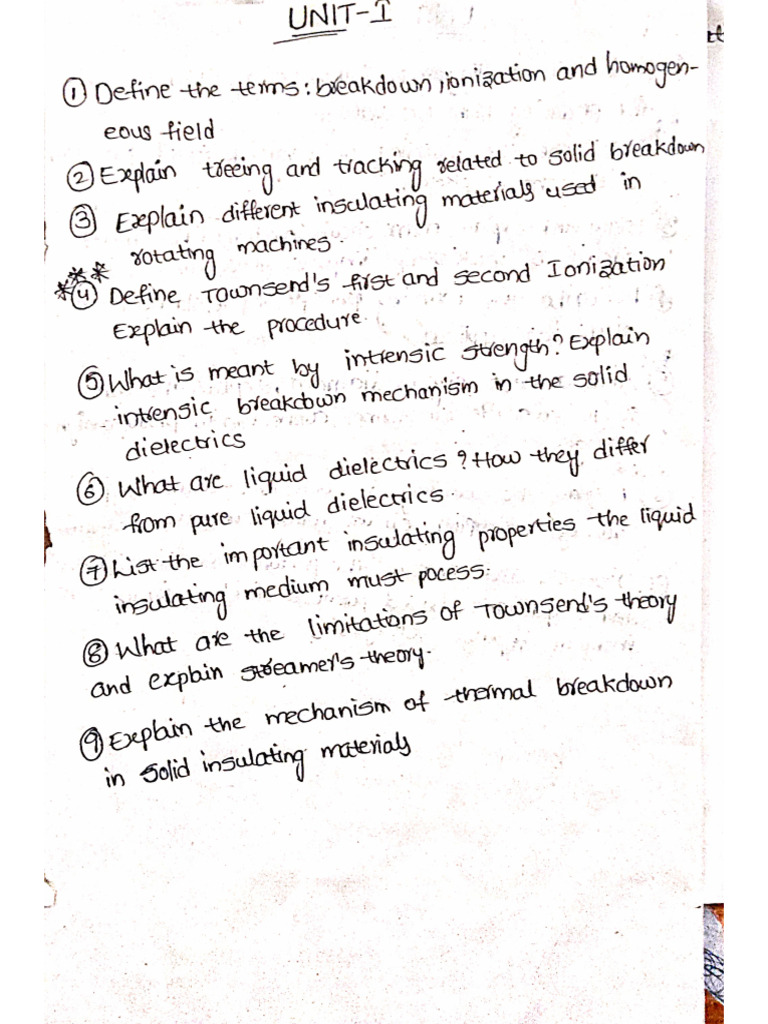 UNIT-I
① Define the terms: breakdown, ionization and homogen-
eous field
② Explain treeing and tracking related to solid breakdown
③ Explain different insulating materials used in
rotating machines.
***④ Define Townsend's first and second Ionization
Explain the procedure.
⑤ What is meant by intrensic strength? Explain
intrensic breakdown mechanism in the solid
dielectrics
⑥ What are liquid dielectrics? How they differ
from pure liquid dielectrics.
⑦ List the important insulating properties the liquid
insulating medium must pocess.
⑧ What are the limitations of Townsend's theory
and explain streamer's theory.
⑨ Explain the mechanism of thermal breakdown
in solid insulating materials